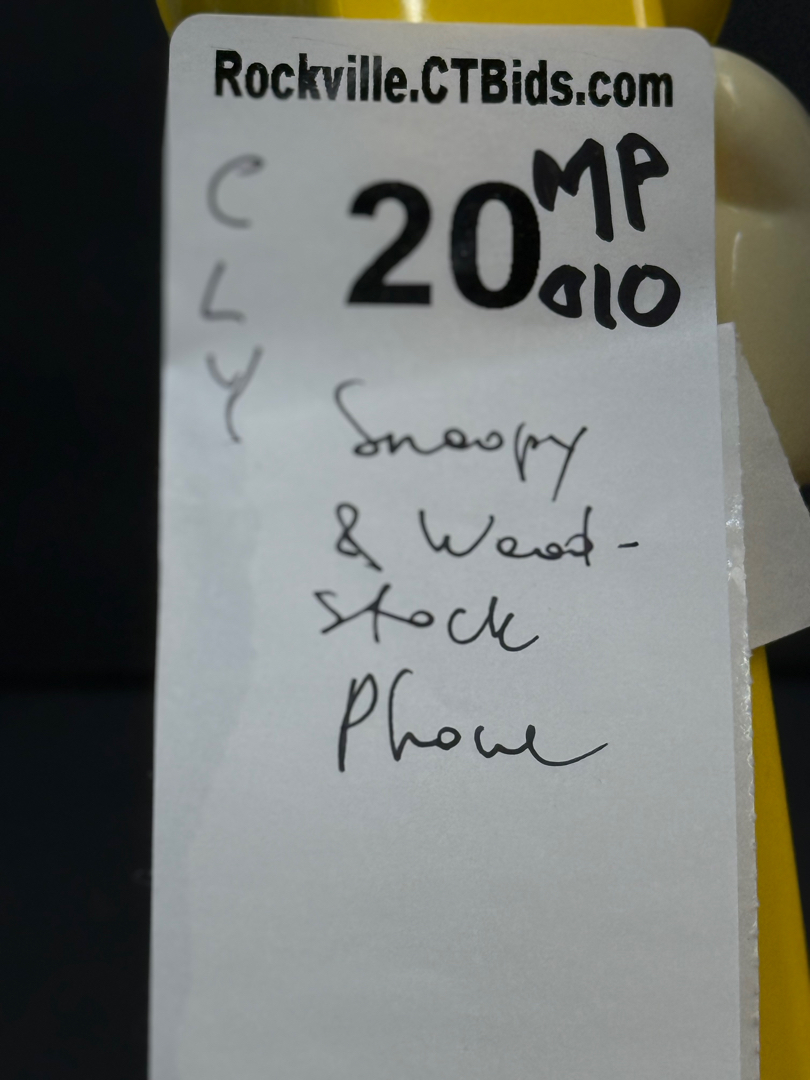 Rockville.CTBids.com
C
L
Y
20 MP
010
Snoopy
& Wood-
stock
Phone